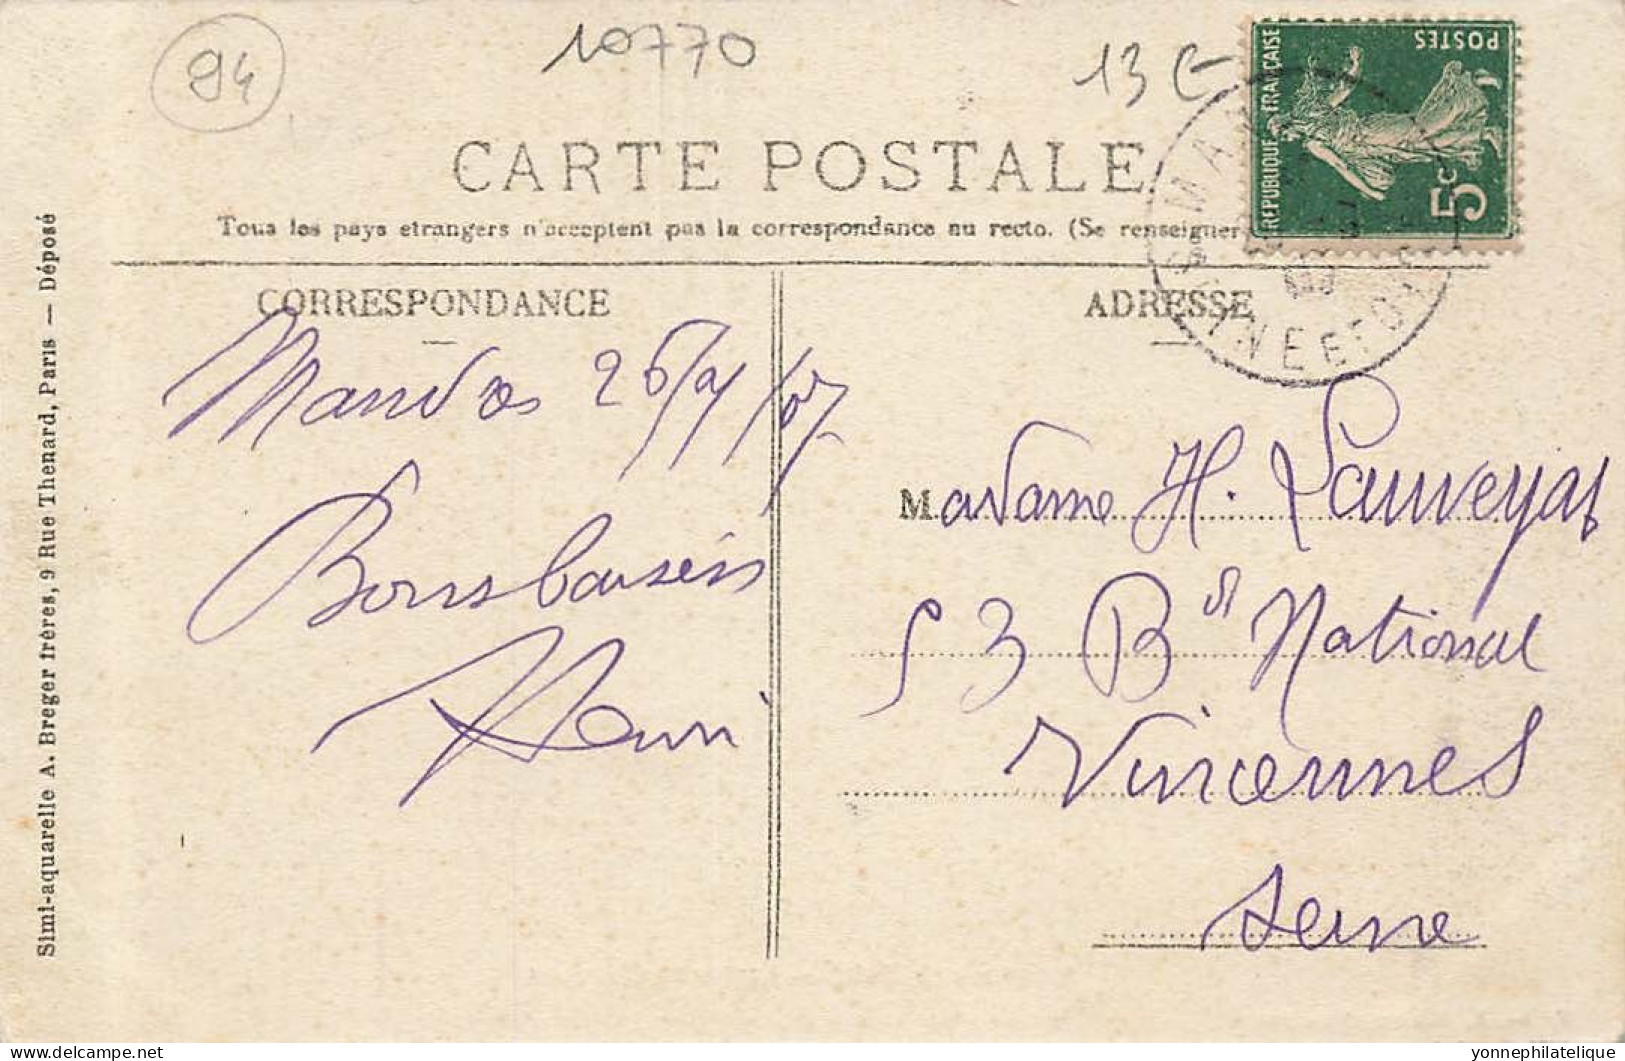 94
10770
13 €
POSTES
REPUBLIQUE FRANÇAISE
5c
CARTE POSTALE
Tous les pays etrangers n'acceptent pas la correspondance au recto. (Se renseigner
CORRESPONDANCE
ADRESSE
SEINE ET OISE
Mandres 26/9/07
Bons baisers
Henri
Madame H. Lauveyas
53 Bd National
Vincennes
Seine
Simi-aquarelle A. Breger frères, 9 Rue Thenard, Paris — Déposé
delcampe.net
yonnephilatelique